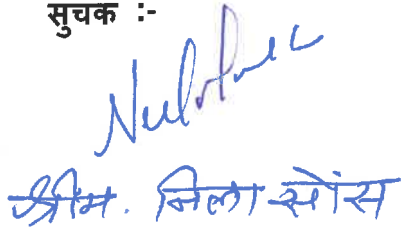 सुचक :-
श्रीम. निला सोंस